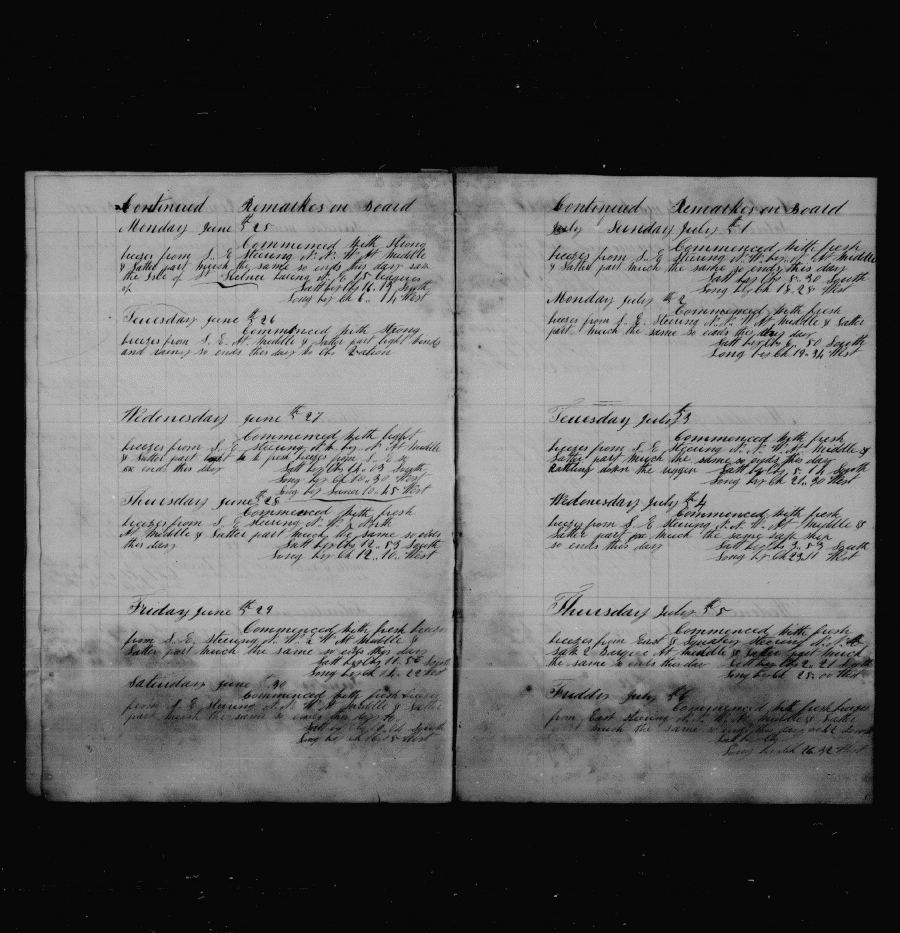 Continued Remarkes on Board
Monday June th 25
Commenced with strong
breezes from S. E steering N. N. W. At Middle
& Latter part much the same so ends this day saw
the Isle of St Helena baring N. E 25 leagues
of Latt by Obs 16.. 13 South
Long by Ch 6.. 14 West
Teuesday June th 26
Commenced with strong
breezes from S. E. At Middle & Latter part light winds
and rainy so ends this day no Obs
Wedenesday June th 27
Commenced with light
breezes from S. E steering N. W. by N At Middle
& Latter part fresh breezes from S. E
so ends this day Latt by Obs 14.. 03 South
Long by Ch 10.. 30 West
Long by Lunar 10.. 45 West
Thursday June th 28
Commenced with fresh
breezes from S. E steering N. W. & North
At Middle & Latter part much the same so ends
this day Latt by Obs 12.. 53 South
Long by Ch 12.. 10 West
Friday June th 29
Commenced with fresh breezes
from S. E. steering N. W. At Middle &
Latter part much the same so ends this day
Latt by Obs 11.. 50 South
Long by Ch 14.. 22 West
Saturday June 30
Commenced with fresh breezes
from S. E steering N. N. W At Middle & Latter
part much the same so ends this day
Latt by Obs South
Long by Ch West
Continued Remarkes on Board
July Sunday July th 1
Commenced with fresh
breezes from S. E Steering N. W. by N. At Middle
& Latter part much the same so ends this day
Latt by Obs 8.. 30 South
Long by Ch 18.. 28 West
Monday July th 2
Commenced with fresh
breezes from S. E. Steering N. N. W At Middle & Latter
part much the same so ends this day
Latt by Obs 6.. 50 South
Long by Ch 19.. 34 West
Teuesday July th 3
Commenced with fresh
breezes from S. E Steering N. N. W. At Middle &
Latter part much the same so ends this day
Rattling down the riggen Latt by Obs 5.. 14 South
Long by Ch 21.. 30 West
Wedenesday July th 4
Commenced with fresh
breezes from S. E steering N. N. W. At Middle &
Latter part much the same saw ship
so ends this day Latt by Obs 3.. 53 South
Long by Ch 23.. 11 West
Thuersday July th 5
Commenced with fresh
breezes from East & squaley steering N. N. W
saw 2 At Middle & Latter part much
the same so ends this day Latt by Obs 2.. 21 South
Long by Ch 25.. 01 West
Fridday July th 6
Commenced with fresh breezes
from East steering N. N. W. At Middle & Latter
part much the same so ends this day
Latt by Obs
Long by Ch 26.. 32 West